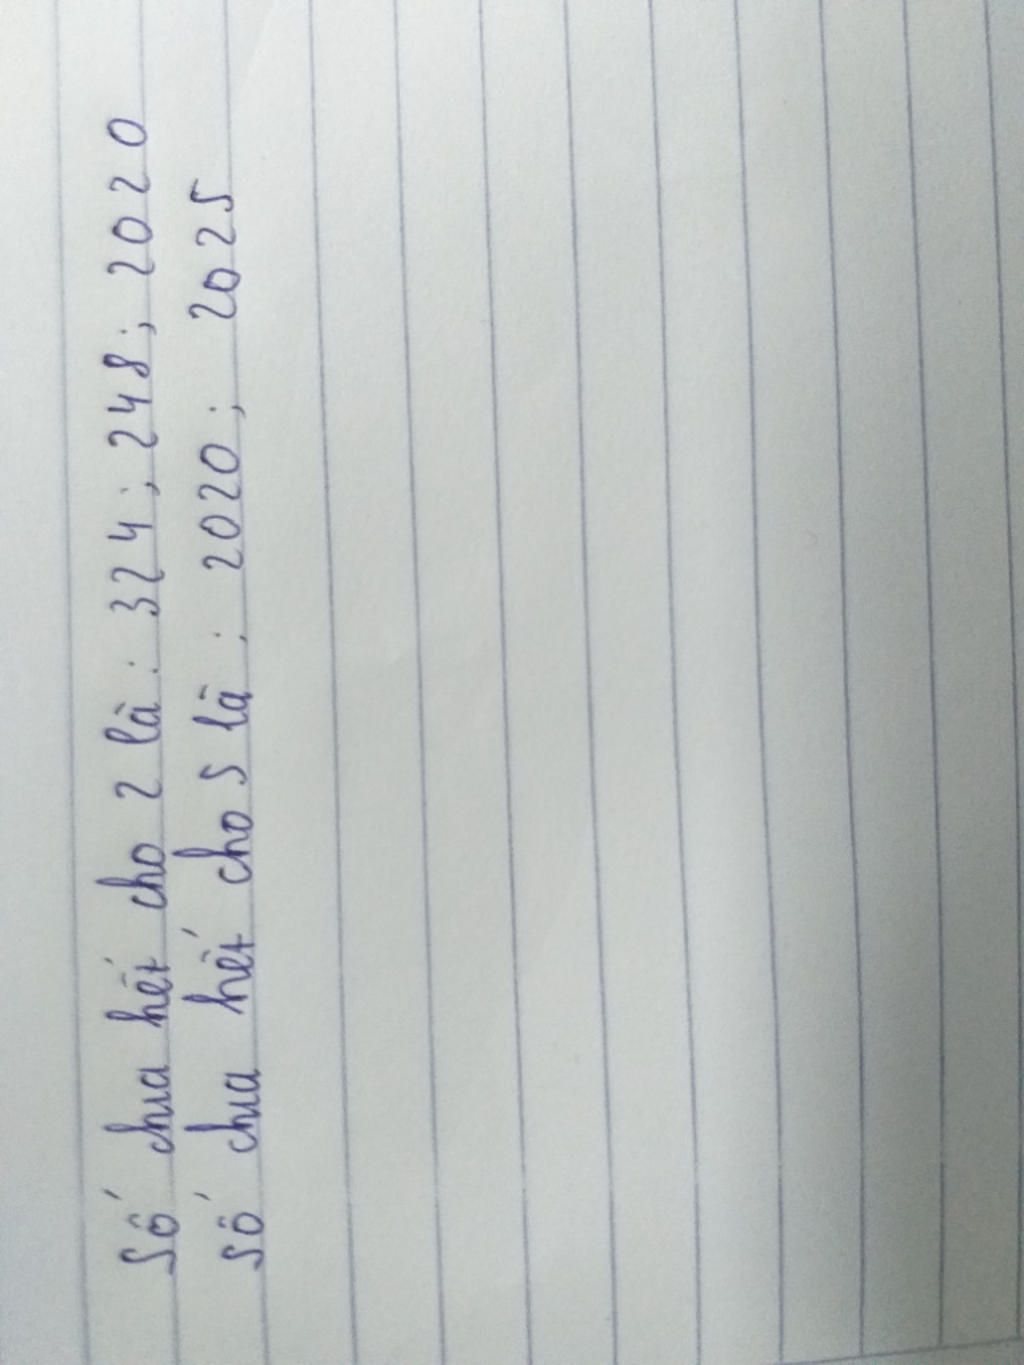 Số chia hết cho 2 là: 324; 248; 2020
số chia hết cho 5 là: 2020; 2025